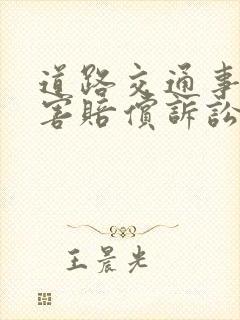 道路交通事
害賠償訴訟
王晨光